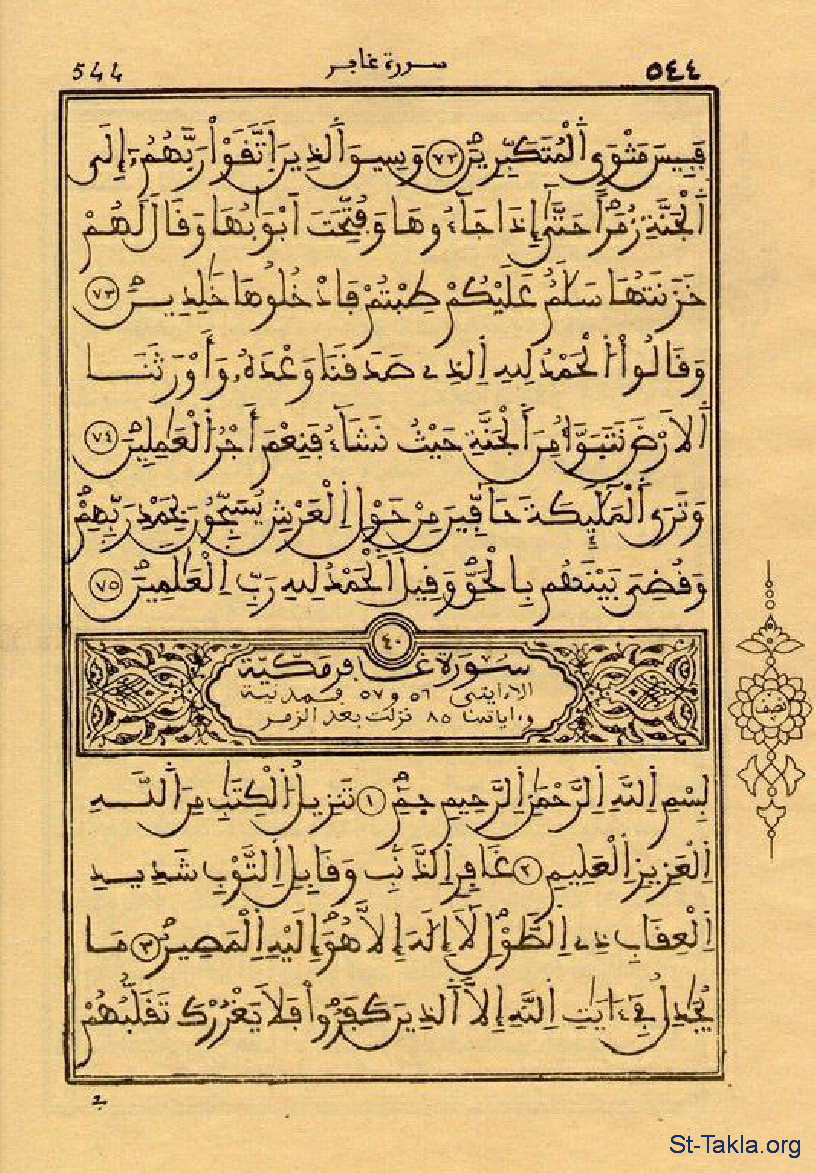 544 سورة غافر ٥٤٤
فَبِيسَ مَثْوَى اَ۬لْمُتَكَبِّرِينَ ٧٢ وَسِيقَ اَ۬لذِينَ اَ۪تَّقَوْاْ رَبَّهُمُۥٓ إِلَى
اَ۬لْجَنَّةِ زُمَراً حَتَّىٰٓ إِذَا جَآءُوهَا وَفُتِّحَتَ اَبْوَٰبُهَا وَقَالَ لَهُمْ
خَزَنَتُهَا سَلَٰمٌ عَلَيْكُمْ طِبْتُمْ فَادْخُلُوهَا خَٰلِدِينَ ٧٣
وَقَالُواْ اُ۬لْحَمْدُ لِلهِ اِ۬لذِے صَدَقَنَا وَعْدَهُۥ وَأَوْرَثَنَا
اَ۬لَارْضَ نَتَبَوَّأُ مِنَ اَ۬لْجَنَّةِ حَيْثُ نَشَآءُ فَنِعْمَ أَجْرُ اُ۬لْعَٰمِلِينَ ٧٤
وَتَرَى اَ۬لْمَلَٰٓئِكَةَ حَآفِّينَ مِنْ حَوْلِ اِ۬لْعَرْشِ يُسَبِّحُونَ بِحَمْدِ رَبِّهِمْ
وَقُضِيَ بَيْنَهُم بِالْحَقِّ وَقِيلَ اَ۬لْحَمْدُ لِلهِ رَبِّ اِ۬لْعَٰلَمِينَ ٧٥
٤٠
سُورَةُ غَافِر مَكِّيَّة
الا ءايتي ٥٦ و ٥٧ فمدنية
وءاياتها ٨٥ نزلت بعد الزمر
نصف
بِسْمِ اِ۬للَّهِ اِ۬لرَّحْمَٰنِ اِ۬لرَّحِيمِ حَمِٓ ١ تَنزِيلُ اُ۬لْكِتَٰبِ مِنَ اَ۬للَّهِ
اِ۬لْعَزِيزِ اِ۬لْعَلِيمِ ٢ غَافِرِ اِ۬لذَّنۢبِ وَقَابِلِ اِ۬لتَّوْبِ شَدِيدِ
اِ۬لْعِقَابِ ذِے اِ۬لطَّوْلِ لَآ إِلَٰهَ إِلَّا هُوَ إِلَيْهِ اِ۬لْمَصِيرُ ٣ مَا
يُجَٰدِلُ فِےٓ ءَايَٰتِ اِ۬للَّهِ إِلَّا اَ۬لذِينَ كَفَرُواْ فَلَا يَغْرُرْكَ تَقَلُّبُهُمْ
St-Takla.org